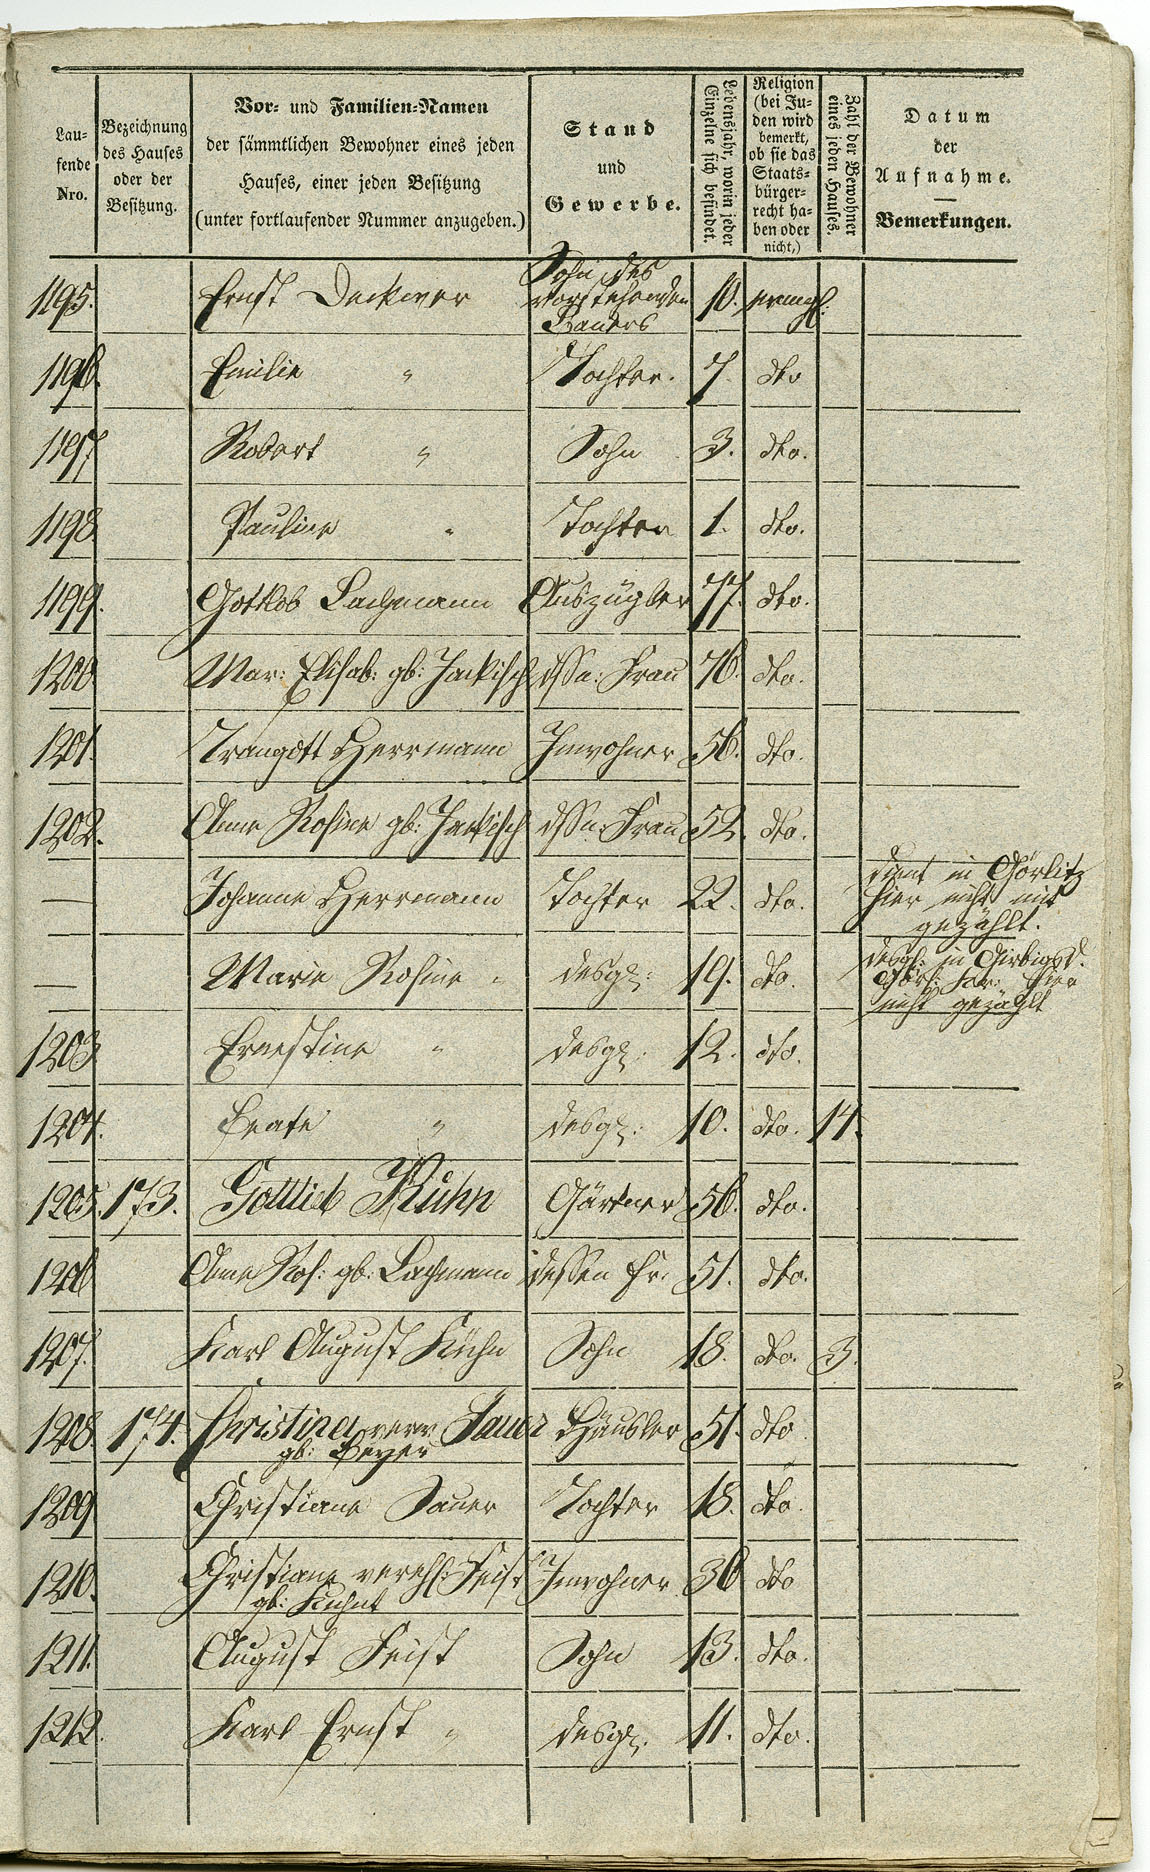 Lau-
fende
Nro.
Bezeichnung
des Hauses
oder der
Besitzung.
Vor- und Familien-Namen
der sämmtlichen Bewohner eines jeden
Hauses, einer jeden Besitzung
(unter fortlaufender Nummer anzugeben.)
Stand
und
Gewerbe.
Lebensjahr, worin jeder
Einzelne sich befindet.
Religion
(bei Ju-
den wird
bemerkt,
ob sie das
Staats-
bürger-
recht ha-
ben oder
nicht,)
Zahl der Bewohner
eines jeden Hauses.
Datum
der
Aufnahme.
Bemerkungen.
1195. Ernst Deckwer Sohn des vorstehenden Bauers 10. evangl:
1196. Emilie " Tochter. 7. dto
1197 Robert " Sohn 3. dto.
1198 Pauline " Tochter 1. dto.
1199. Gottlob Lachmann Auszügler 77. dto.
1200 Mar: Elisab: gb: Jackisch dssn: Frau 76. dto.
1201. Traugott Herrmann Inwohner 56. dto.
1202. Anne Rosine gb: Jackisch dssn: Frau 52. dto.
— Johanne Herrmann Tochter 22. dto. dient in Görlitz
hier nicht mit
gezählt.
— Marie Rosine " desgl: 19. dto. desgl: in Girbigsd.
hier
nicht gezählt
1203 Ernestine " desgl: 12. dto.
1204. Beate " desgl: 10. dto. 14.
1205. 173. Gottlieb Kühn Gärtner 56. dto.
1206 Anne Ros: gb: Lachmann dessen Fr: 51. dto.
1207. Karl August Kühn Sohn 18. dto. 3.
1208. 174. Christiane verw Sauer Häusler 51. dto
gb: Beyer
1209 Christiane Sauer Tochter 18. dto.
1210. Christiane verehl: Feist Inwohner 36 dto
gb: Kuhnt
1211. August Feist Sohn 13. dto.
1212. Karl Ernst " desgl. 11. dto.